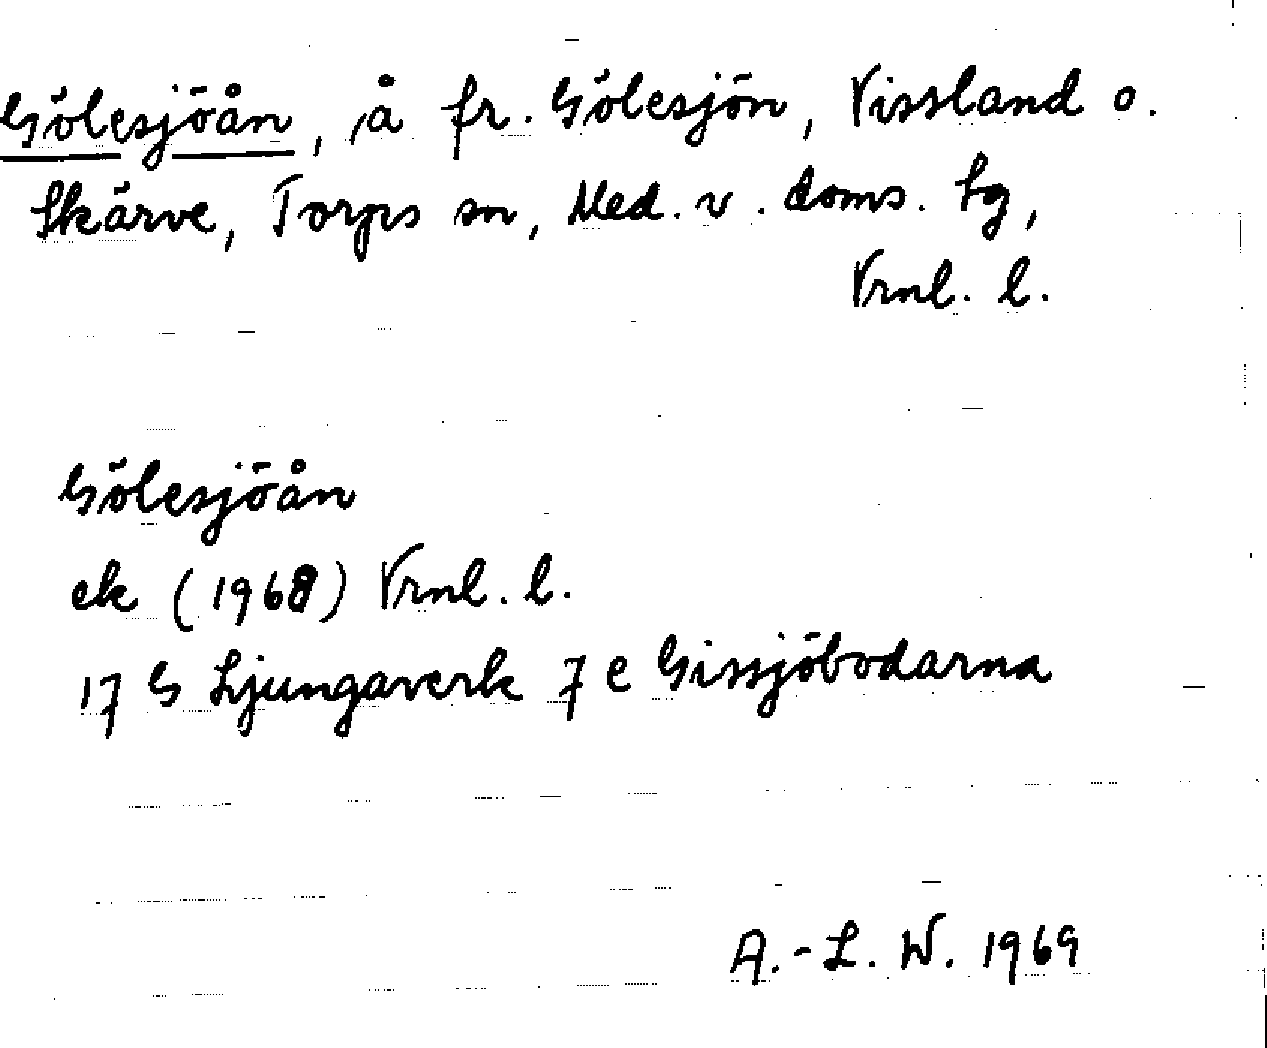 Gölesjöån, å fr. Gölesjön, Vissland o.
Skärve, Torps sn, Med. v. doms. tg,
Vrnl. l.
Gölesjöån
ek (1968) Vrnl. l.
17 G Ljungaverk 7 e Gissjöbodarna
A.-L. W. 1969